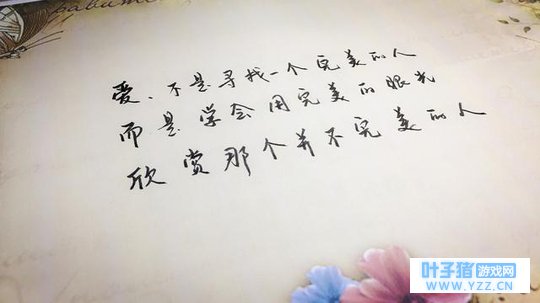 爱、不是寻找一个完美的人
而是学会用完美的眼光
欣赏那个并不完美的人
叶子猪游戏网
www.YZZ.CN